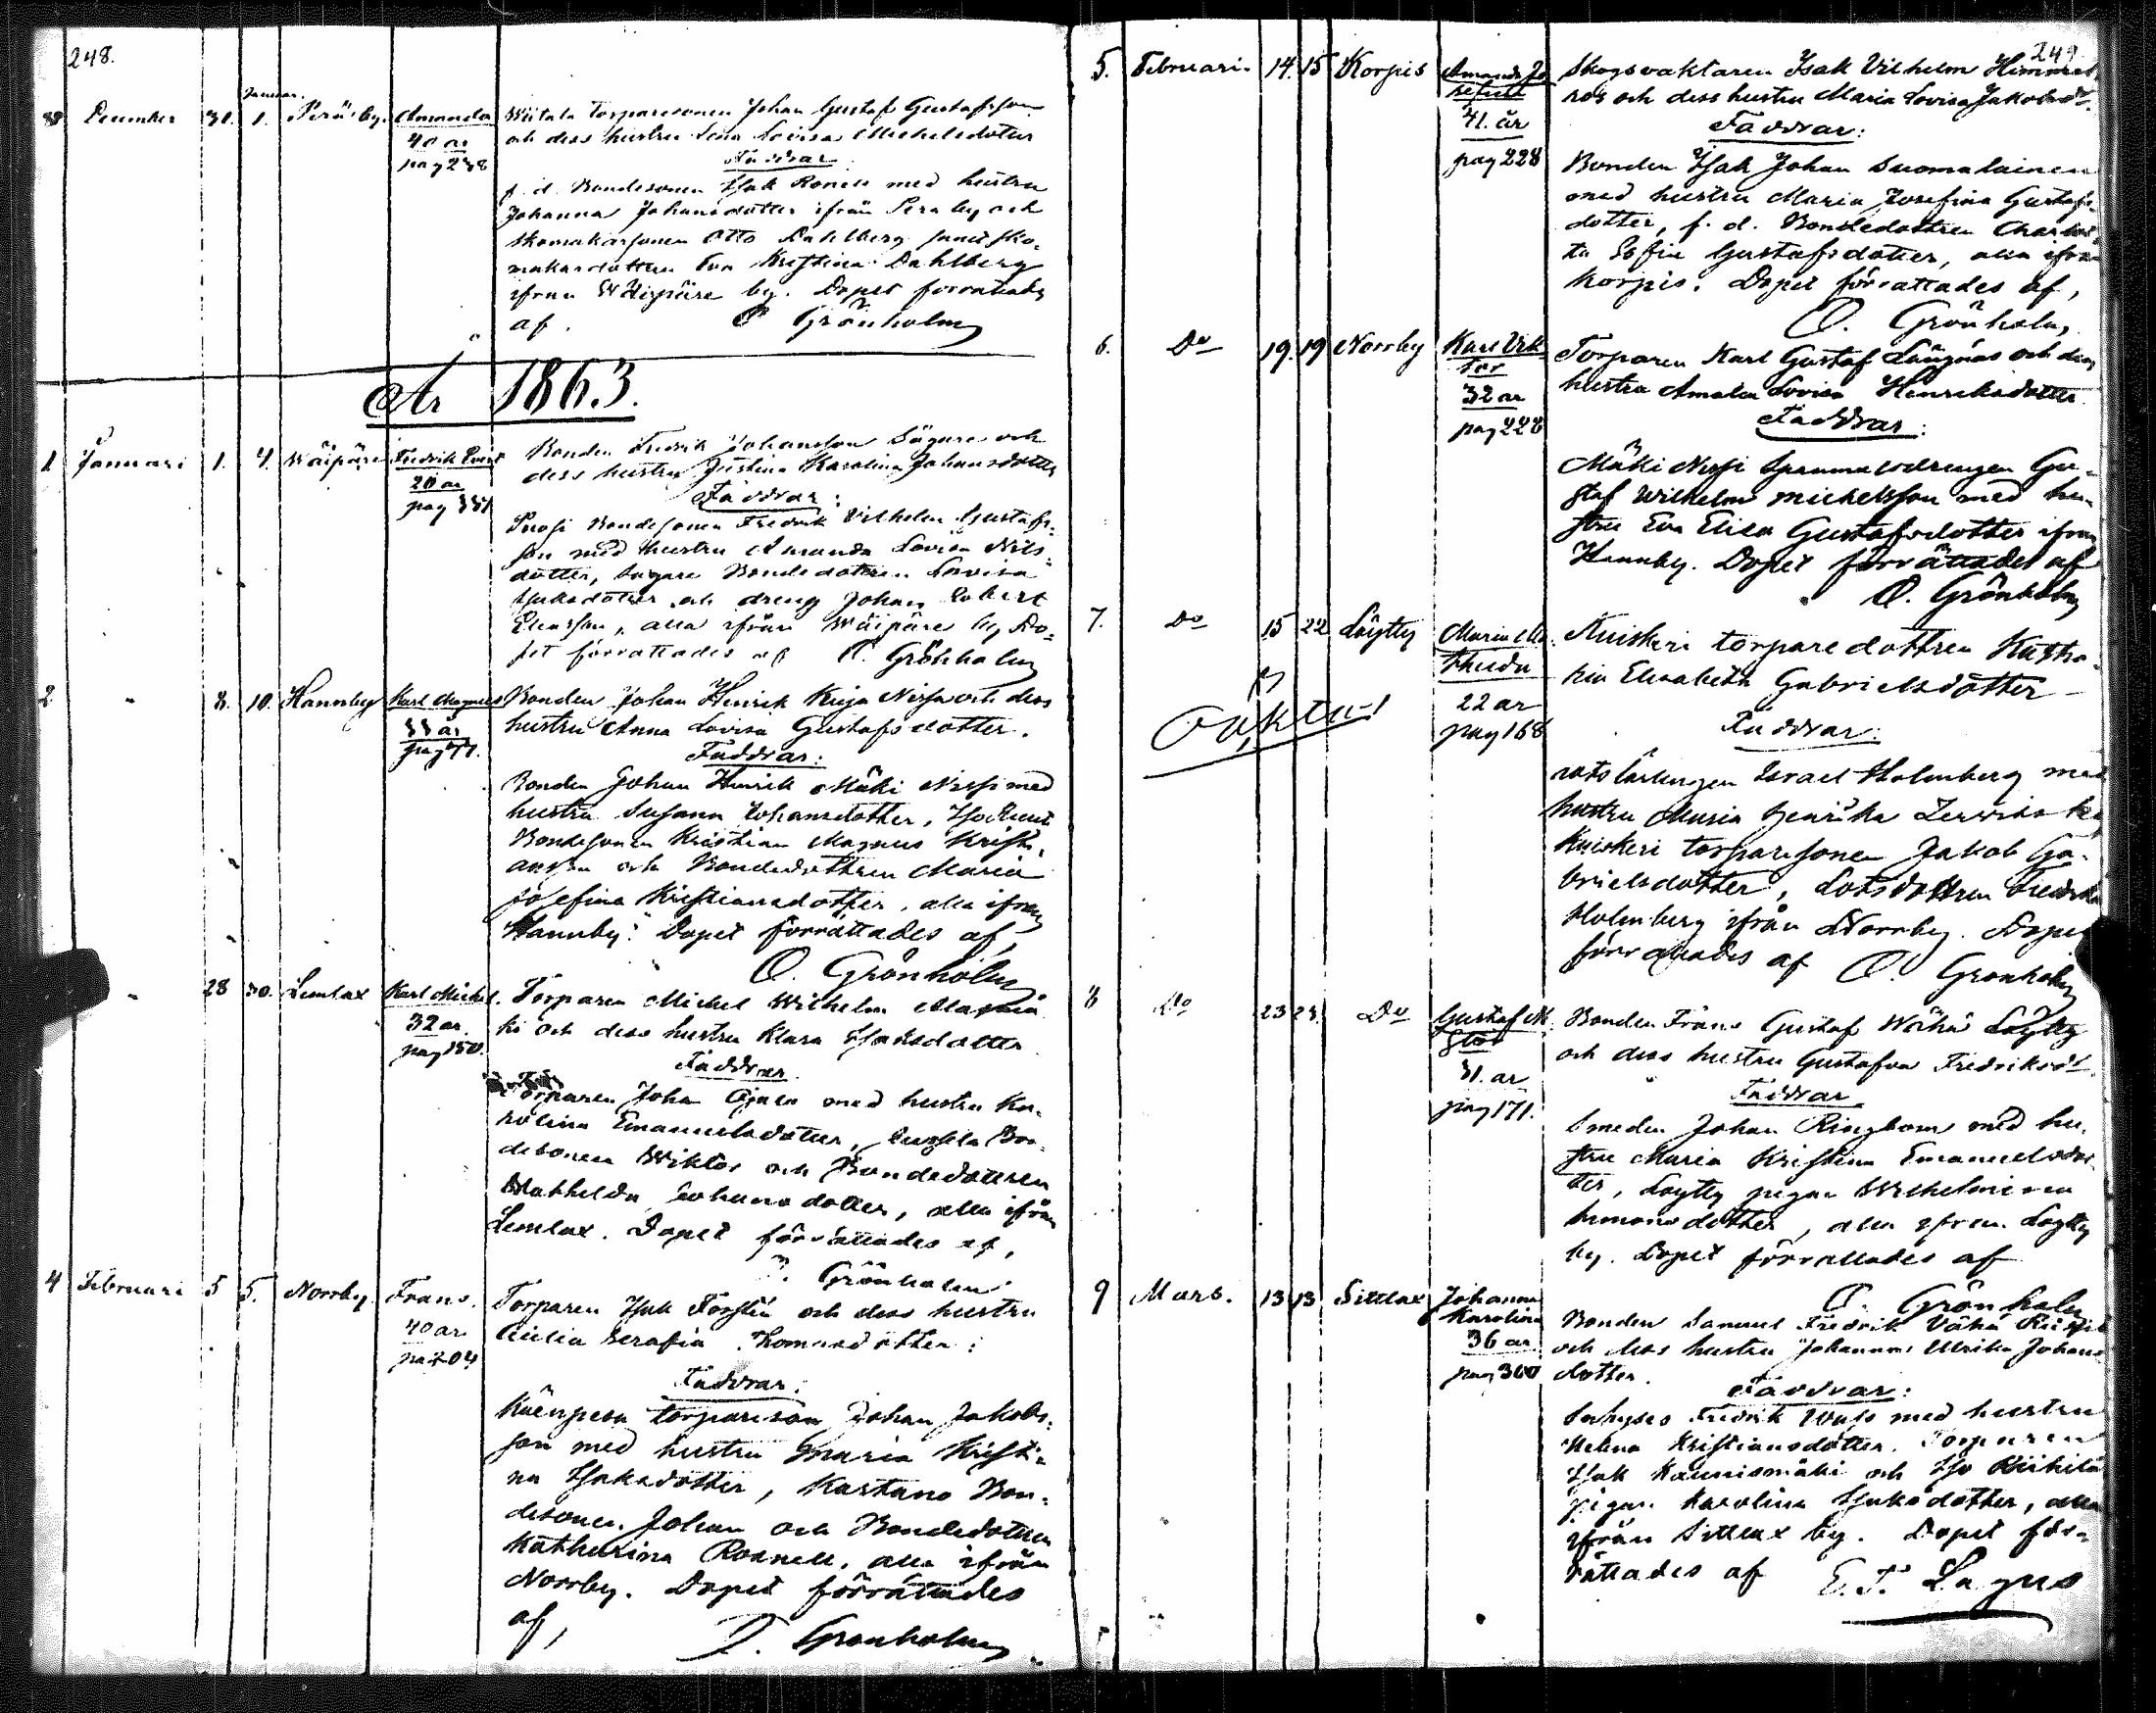 248.
Januar.
December 31. 1. Peräby. Amanda Wiitala Torparesonen Johan Gustaf Gustafsson
40 år och dess hustru Lena Lovisa Michelsdotter
pag 238 Faddrar
f. d. Bondesonen Isak Ronell med hustru
Johanna Johansdotter ifrån Peraby och
skomakarsonen Otto Dahlberg samt sko-
makardottren Eva Kristina Dahlberg
ifrån Wäipäre by. Dopet forrattades
af. O Grönholm
År 1863.
1 Januari 1. 4. Wäipäre Fredrik Bonden Fredrik Johansson Sägare och
20 år dess hustru Justina Karolina Johansdotter
pag 331 Faddrar:
Bondesonen Fredrik Vilhelm Gustafs-
son med hustru Amanda Lovisa Nils-
dotter, Sägare Bondedottren Lovisa
Isaksdotter och dreng Johan Robert
Eliasson, alla ifrån Wäipäre by Do-
pet förrattades af O. Grönholm
2. " 8. 10. Hannby Karl Magnus Bonden Johan Henrik Kuja Nissi och dess
33 år hustru Anna Lovisa Gustafsdotter.
pag 77. Faddrar:
Bonden Johan Henrik Mäki Nissi med
hustru Susanna Johansdotter,
Bondesonen Kristian Magnus Kristi-
ansson och Bondedottren Maria
Josefina Kristiansdotter, alla ifrån
Hannby. Dopet förrättades af,
O. Grönholm
" 28 30. Lemlax Karl Michel. Torparen Michel Wilhelm
32 år. ki och dess hustru Klara Isaksdotter
pag 150. Faddrar
Torparen Joha med hustru Ka-
rolina Emanuelsdotter, Bon-
desonen Wiktor och Bondedottren
Mathilda Johansdotter, alla ifrån
Lemlax. Dopet förrättades af,
O. Grönholm
4 Februari 5 5. Norrby. Frans. Torparen Isak Forstén och dess hustru
40 år. Cicilia Serafia Thomasdotter:
pa 204
Faddrar:
Käenpesa torpareson Johan Jakobs-
son med hustru Maria Kristi-
na Isaksdotter, Kartano Bon-
desonen Johan och Bondedottren
Katharina Rosnell, alla ifrån
Norrby. Dopet förrättades
af, O. Grönholm
249.
5. Februari. 14. 15 Korpis Amanda Jo Skogsvaktaren Isak Vilhelm Himmel
sefina ros och dess hustru Maria Lovisa Jakobsdr.
41. år Faddrar:
pag 228 Bonden Isak Johan Suomalainen
med hustru Maria Josefina Gustafs-
dotter, f. d. Bondedottren Charlot-
ta Sofia Gustafsdotter, alla ifrån
Korpis. Dopet förrattades af,
O. Grönholm
6. Do 19. 19 Norrby Karl Vik Torparen Karl Gustaf Långnäs och dess
tor hustru Amalia Lovisa Henriksdotter
32 år Faddrar:
pag 228
Mäki Nissi Spannmålsdrengen Gu-
staf Wilhelm Michelsson med hu-
stru Eva Elisa Gustafsdotter ifrån
Hannby. Dopet förrättades af
O. Grönholm
7. Do 15 22 Löytty Maria Ma Kuiskeri torparedottren Katha-
thilda rina Elisabeth Gabrielsdotter
22 år Faddrar:
Oäkta! pag 168
rotslärlingen Israel Holmberg med
hustru Maria Henrika
Kuiskeri torparesonen Jakob Ga-
brielsdotter, Lotsdottren Fredrika
Holmberg ifrån Norrby. Dopet
förrattades af O. Grönholm
8 Do 23 23. Do Gustaf A Bonden Frans Gustaf Wähä Löytty
31. år och dess hustru Gustafva Fredriksdr.
pag 171. Faddrar
Smeden Johan Ringbom med hu-
stru Maria Kristina Emanuelsdot-
ter, Löytty pigan Wilhelmina
Simonsdotter, alla ifrån Löytty
by. Dopet förrattades af
O. Grönholm
9 Mars. 13 13 Sittlax Johanna Bonden Samuel Fredrik Vähä
Karolina och dess hustru Johanna Ulrika Johans
36 år dotter.
pag 360 Faddrar:
Inhyses Fredrik med hustru
Helena Kristiansdotter. Torparen
Isak Kaunismäki och Iso
pigan Karolina Isaksdotter, alla
ifrån Sittlax by. Dopet för-
rättades af E. T. Lagus